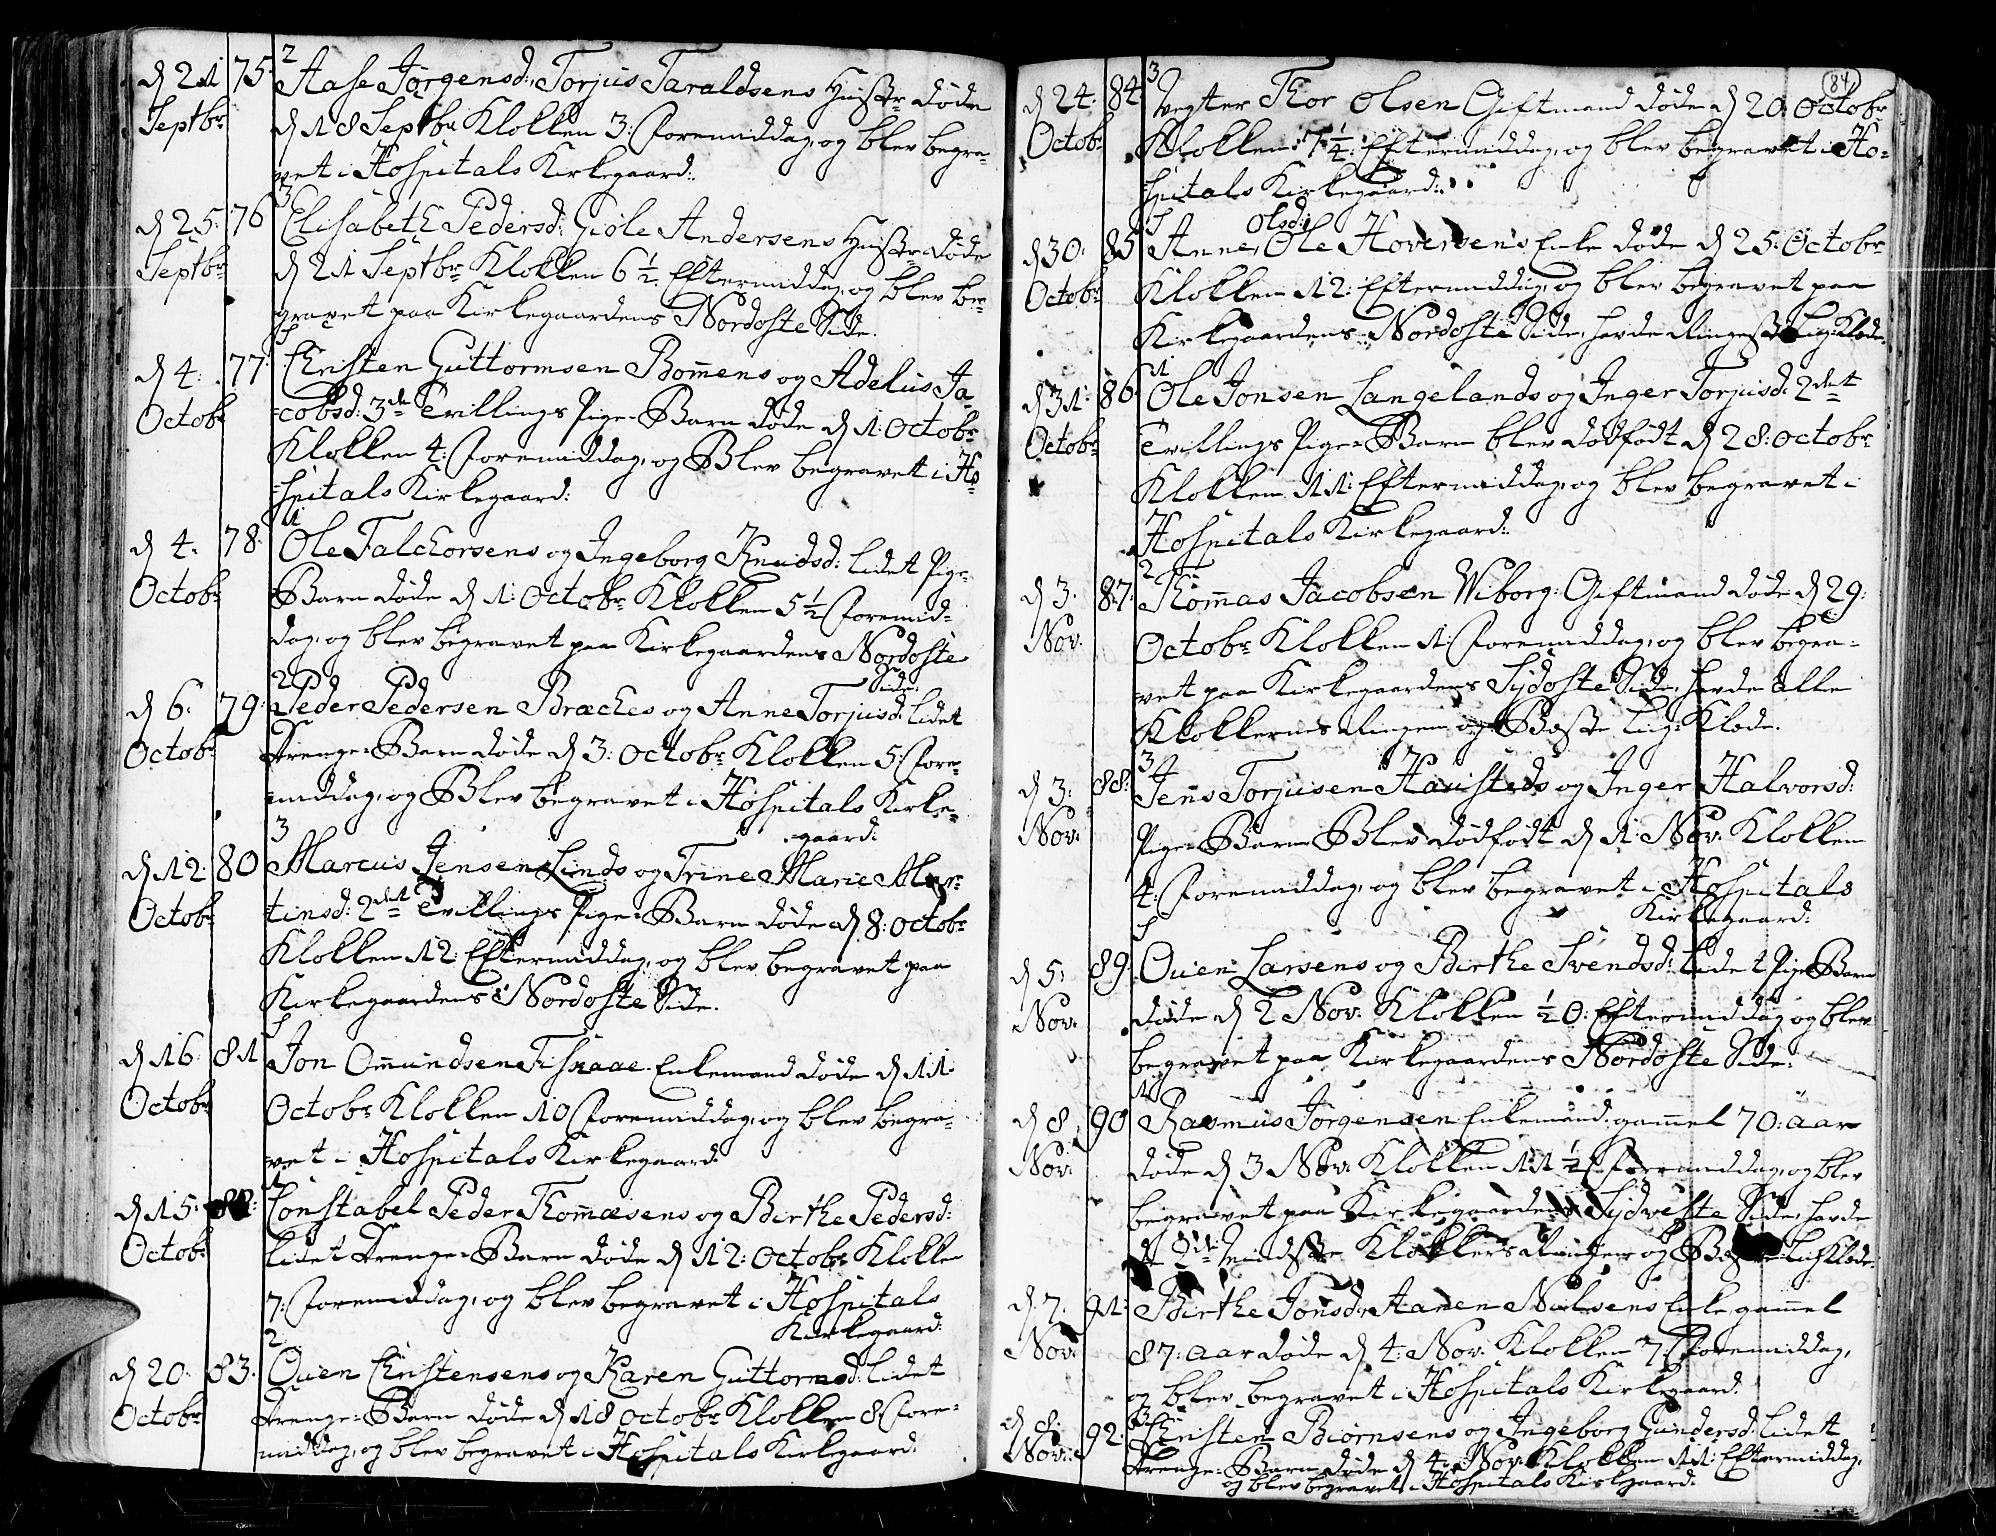 d 21 75. 2 Aase Jørgensd: Torjus Taraldsens Hustr: døde
Septbr d 18 Septbr Klokken 3: Formiddag, og blev begra-
vet i Hospitals Kirkegaard:
d 25: 76 3 Elisabeth Pedersd: Giøle Andersens Hustr: døde
Septbr d 21 Septbr Klokken 6 1/2 Eftermiddag, og blev be-
gravet paa Kirkegaardens Nordoste Side.
d 4: 77: Christen Guttormsen Bom̄ens og Adelus Ja-
Octobr cobsd: 3de Tvillings Pige-Barn døde d 1: Octobr
Klokken 4: Foremiddag, og Blev begravet i Ho-
spitals Kirkegaard:
d 4. 78. 1 Ole Falchorsens og Ingeborg Knudsd: lidet Pige-
Octobr Barn døde d 1: Octobr Klokken 5 1/2 Foremid-
dag, og blev begravet paa Kirkegaardens Nordoste
Side.
d 6. 79: 2 Peder Pedersen Bræches og Anne Torjusd: lidet
Octobr Drenge-Barn døde d 3: Octobr Klokken 5: Fore-
middag, og Blev begravet i Hospitals Kirke-
gaard:
d 12: 80 3 Marcus Jensen Linds og Trine Marie Mar-
Octobr tinsd: 2det Tvillings Pige-Barn døde d 8: Octobr
Klokken 12: Eftermiddag, og blev begravet paa
Kirkegaardens Nordoste Side.
d 16: 81 Jon Om̄undsen Tisnaae Enkemand døde d 11.
Octobr Octobr Klokken 10 Foremiddag, og blev begra-
vet i Hospitals Kirkegaard:
d 15: 82: 1 Constabel Peder Thom̄æsens og Birthe Pedersd:
Octobr lidet Drenge-Barn døde d 12: Octobr Klokken
7: Foremiddag, og blev begravet i Hospitals
Kirkegaard:
d 20. 83. 2 Ouen Christensens og Karen Guttormsd: lidet
Octobr Drenge-Barn døde d 18 Octobr Klokken 8 Fore-
middag, og blev begravet i Hospitals Kirkegaard:
84.
d 24: 84 3 Vegter Thor Olsen Giftmand døde d 20: Octobr
Octobr Klokken 7 1/4: Eftermiddag, og blev begravet i Ho-
spitals Kirkegaard:
Olsd:
d 30. 85 Anne, Ole Hoversens Enke døde d 25: Octobr
Octobr Klokken 12: Eftermiddag, og blev begravet paa
Kirkegaardens Nordoste Side, havde Ringeste Liig-Klæde.
d 31: 86 1 Ole Jonsen Langelands og Inger Torjusd: 2det
Octobr Tvillings Pige-Barn blev dødfødt d 28: Octobr
Klokken 11: Eftermiddag, og blev begravet i
Hospitals Kirkegaard:
d 3. 87. 2 Thom̄as Jacobsen Wiborg: Giftmand døde d 29:
Nov: Octobr Klokken 1: Foremiddag, og blev begra-
vet paa Kirkegaardens Sydoste Side, havde alle
Klokkernes Ringen og Beste Liig-Klæde.
d 3: 88: 3 Jens Torjusen Hausteds og Inger Halvorsd:
Nov: Pige-Barn Blev dødfødt d 1: Nov: Klokken
4: Foremiddag, og blev begravet i Hospitals
Kirkegaard:
d 5: 89: Ouen Larsens og Birthe Svendsd: lidet Pige Barn
Nov: døde d 2 Nov: Klokken 1/2 0: Eftermiddag og blev
begravet paa Kirkegaardens Nordoste Side:
d 8 90 1 Rasmus Jørgensen Enkemand: gammel 70: Aar
Nov: døde d 3 Nov: Klokken 11 1/2 Foremiddag, og blev
begravet paa Kirkegaardens Sydveste Side, havde
mindste Klokkers Ringen og Beste Liig Klæde
d 7. 91: Birthe Jonsd: Aanen Nielsens Enke gam̄el
Nov: 87: Aar døde d 4: Nov: Klokken 7: Foremiddag,
og blev begravet i Hospitals Kirkegaard:
d 8: 92. 3 Christen Biørnsens og Ingeborg Gundersd: lidet
Nov: Drenge-Barn døde d 4: Nov: Klokken 11: Eftermiddag,
og blev begravet i Hospitals Kirkegaard: